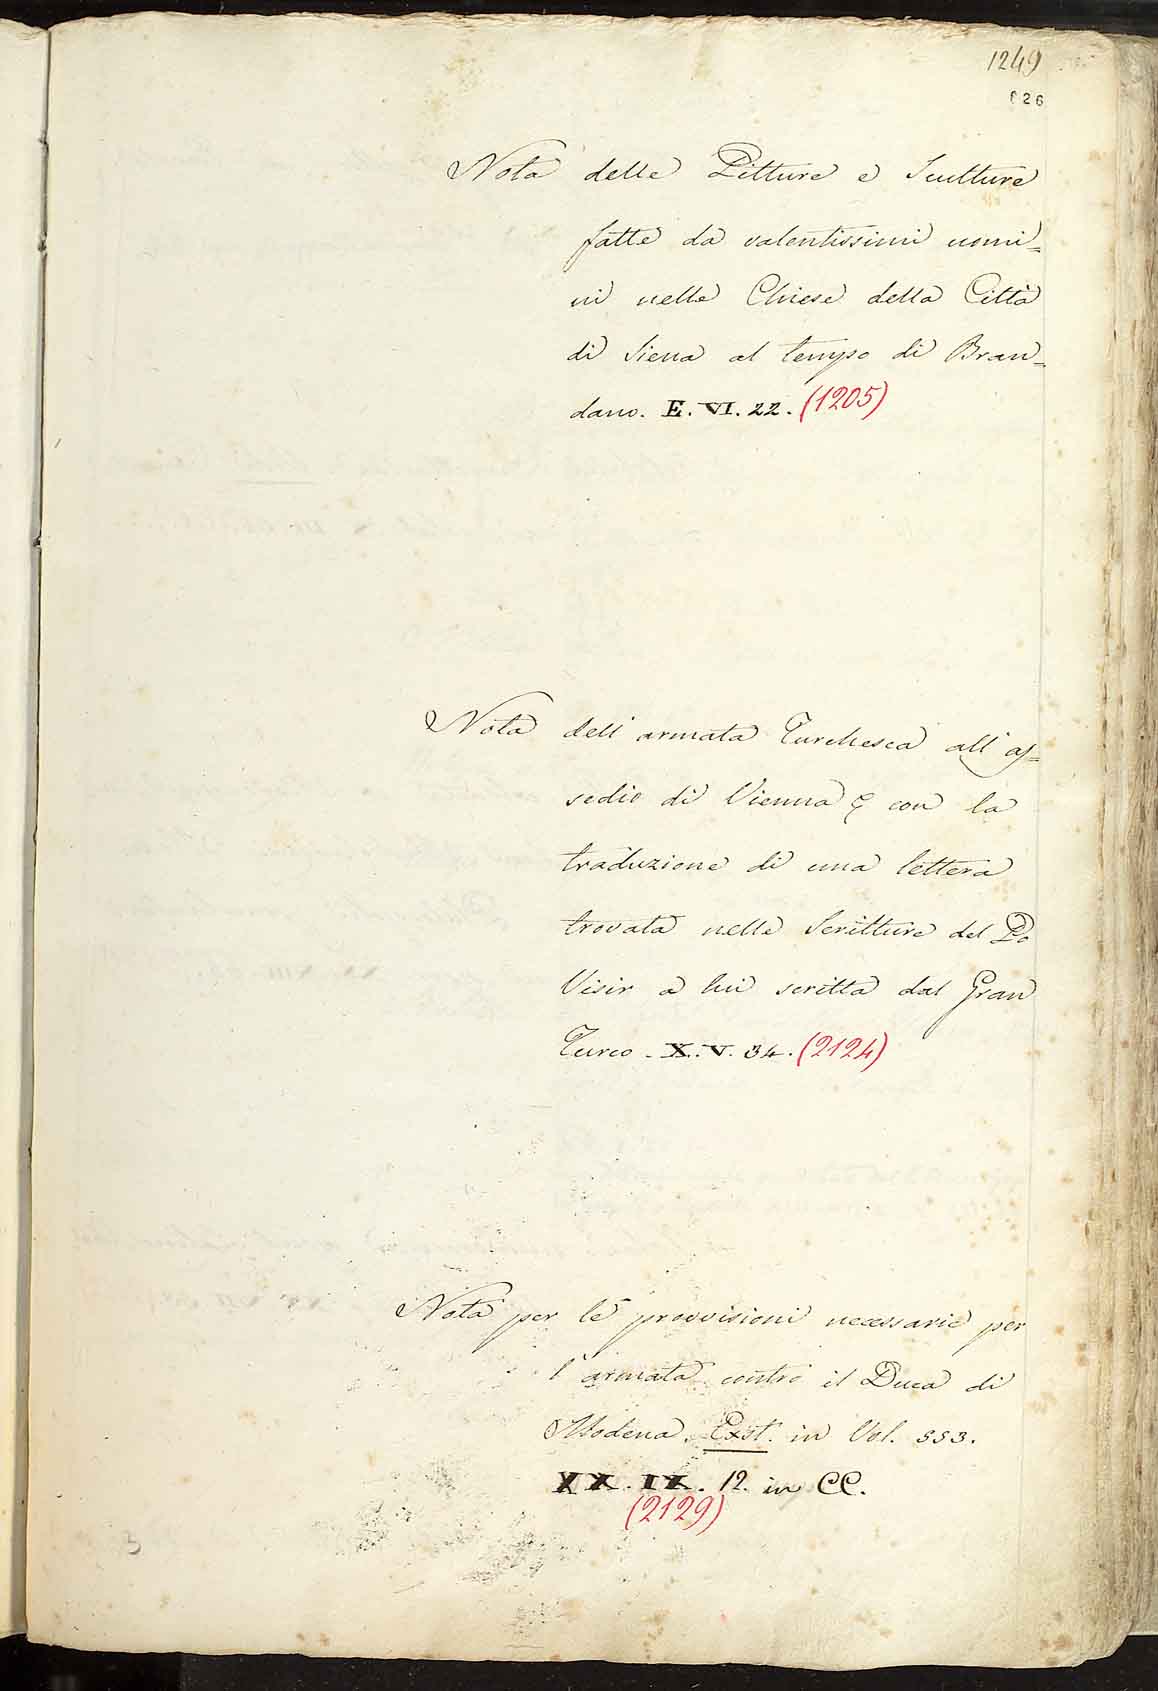 1249
626
Nota delle Pitture e Sculture
fatte da valentissimi uomi=
ni nelle Chiese della Città
di Siena al tempo di Bran=
dano. E. VI. 22. (1205)
Nota dell'armata Turchesca all'as=
sedio di Vienna con la
traduzione di una lettera
trovata nelle Scritture del Po
Visir a lui scritta dal Gran
Turco. X. V. 34. (2124)
Nota per le provvisioni necessarie per
l'armata contro il Duca di
Modena. Exst. in Vol. 553.
XX. IX. 12. in CC.
(2129)
3